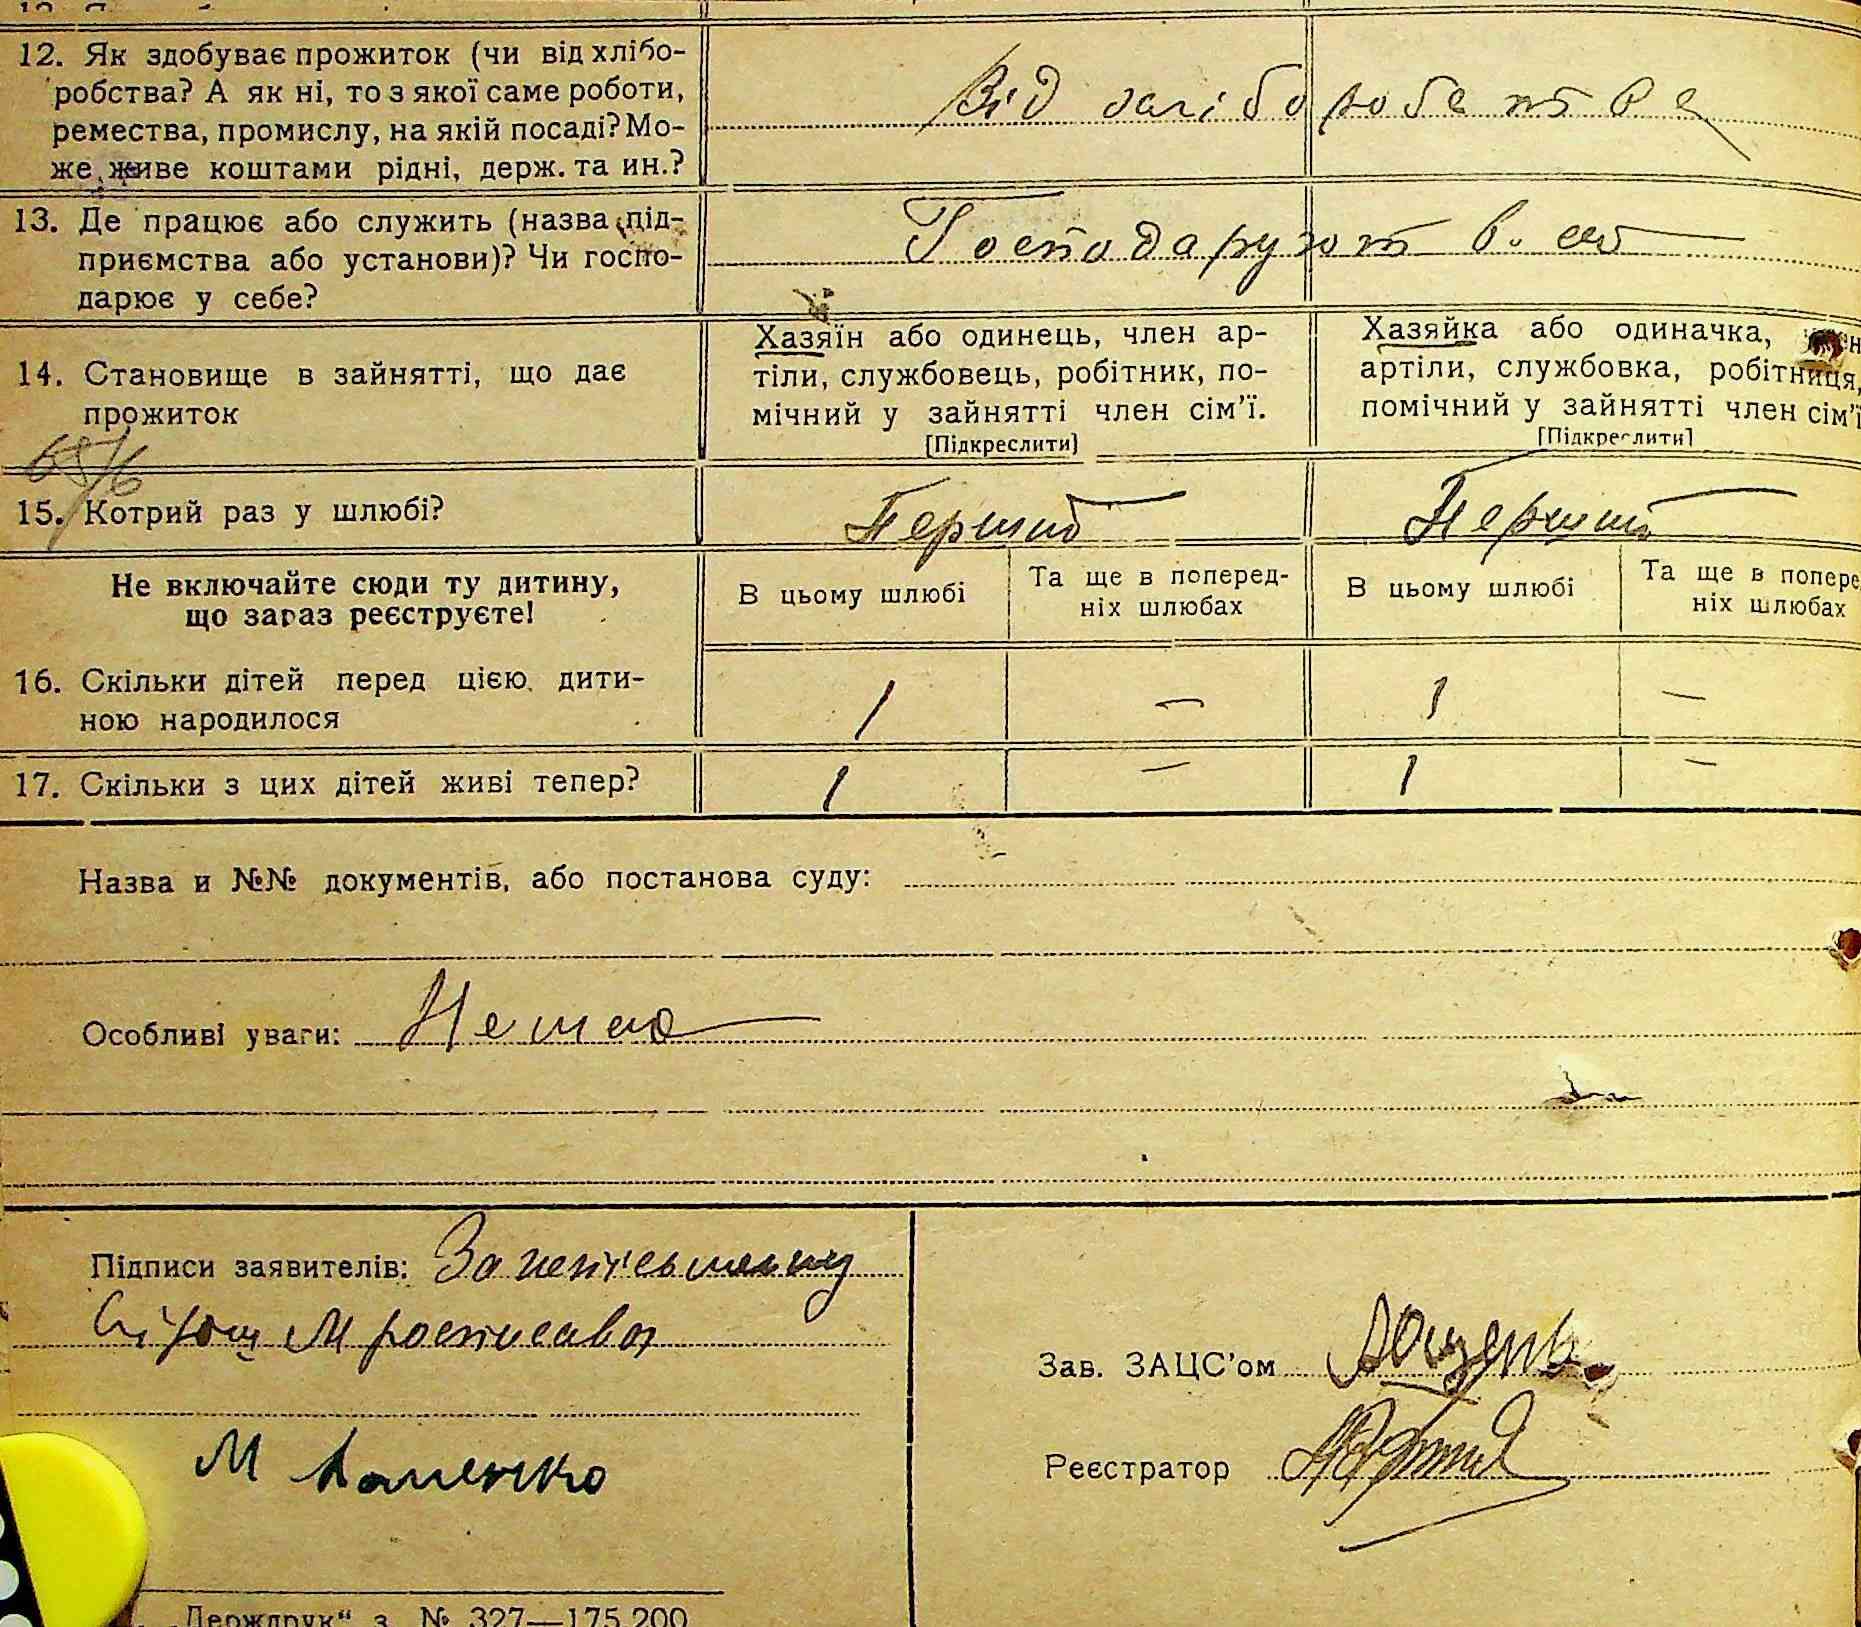 12. Як здобуває прожиток (чи від хлібо-
робства? А як ні, то з якої саме роботи,
ремества, промислу, на якій посаді? Мо-
же живе коштами рідні, держ. та ин.?
Від хліборобства
13. Де працює або служить (назва під-
приємства або установи)? Чи госпо-
дарює у себе?
Господарують в
14. Становище в зайнятті, що дає
прожиток
Хазяїн або одинець, член ар-
тіли, службовець, робітник, по-
мічний у зайнятті член сім'ї.
[Підкреслити]
Хазяйка або одиначка,
артіли, службовка, робітниця,
помічний у зайнятті член сім'ї
[Підкреслити]
68/6
15. Котрий раз у шлюбі?
Перший
Перший
Не включайте сюди ту дитину,
що зараз реєструєте!
В цьому шлюбі
Та ще в поперед-
ніх шлюбах
В цьому шлюбі
Та ще в попере
ніх шлюбах
16. Скільки дітей перед цією дити-
ною народилося
1 — 1 —
17. Скільки з цих дітей живі тепер?
1 — 1 —
Назва и №№ документів, або постанова суду:
Особливі уваги: Немає
Підписи заявителів: За
М Коленко
Зав. ЗАЦС'ом
Реєстратор
„Держдрук“ з. № 327—175.200